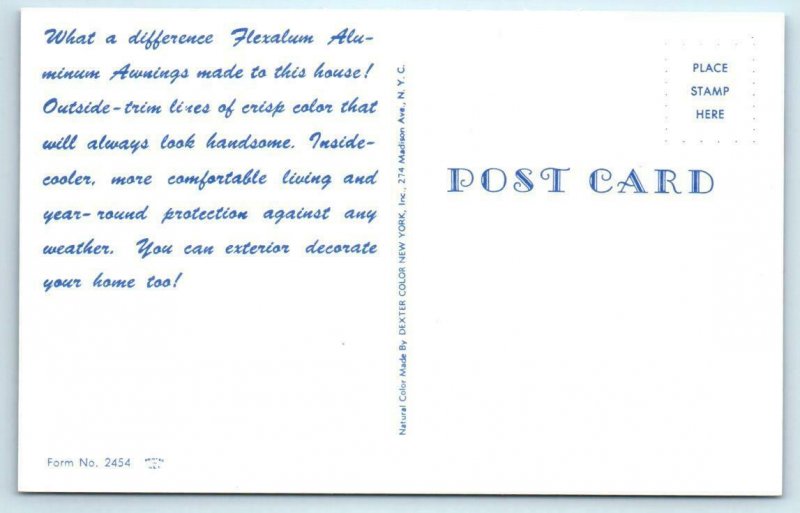 What a difference Flexalum Alu-
minum Awnings made to this house!
Outside-trim lines of crisp color that
will always look handsome. Inside-
cooler, more comfortable living and
year-round protection against any
weather. You can exterior decorate
your home too!
Form No. 2454
Natural Color Made By DEXTER COLOR NEW YORK, Inc., 274 Madison Ave., N. Y. C.
PLACE
STAMP
HERE
POST CARD